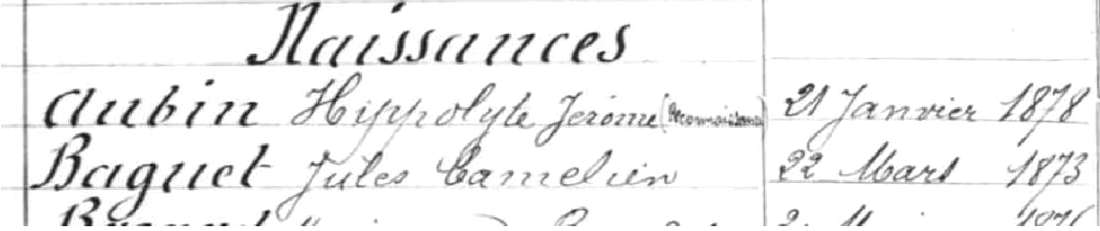 Naissances
Aubin Hippolyte Jérôme (Reconnaissance) 21 Janvier 1878
Baguet Jules Camelien 22 Mars 1873